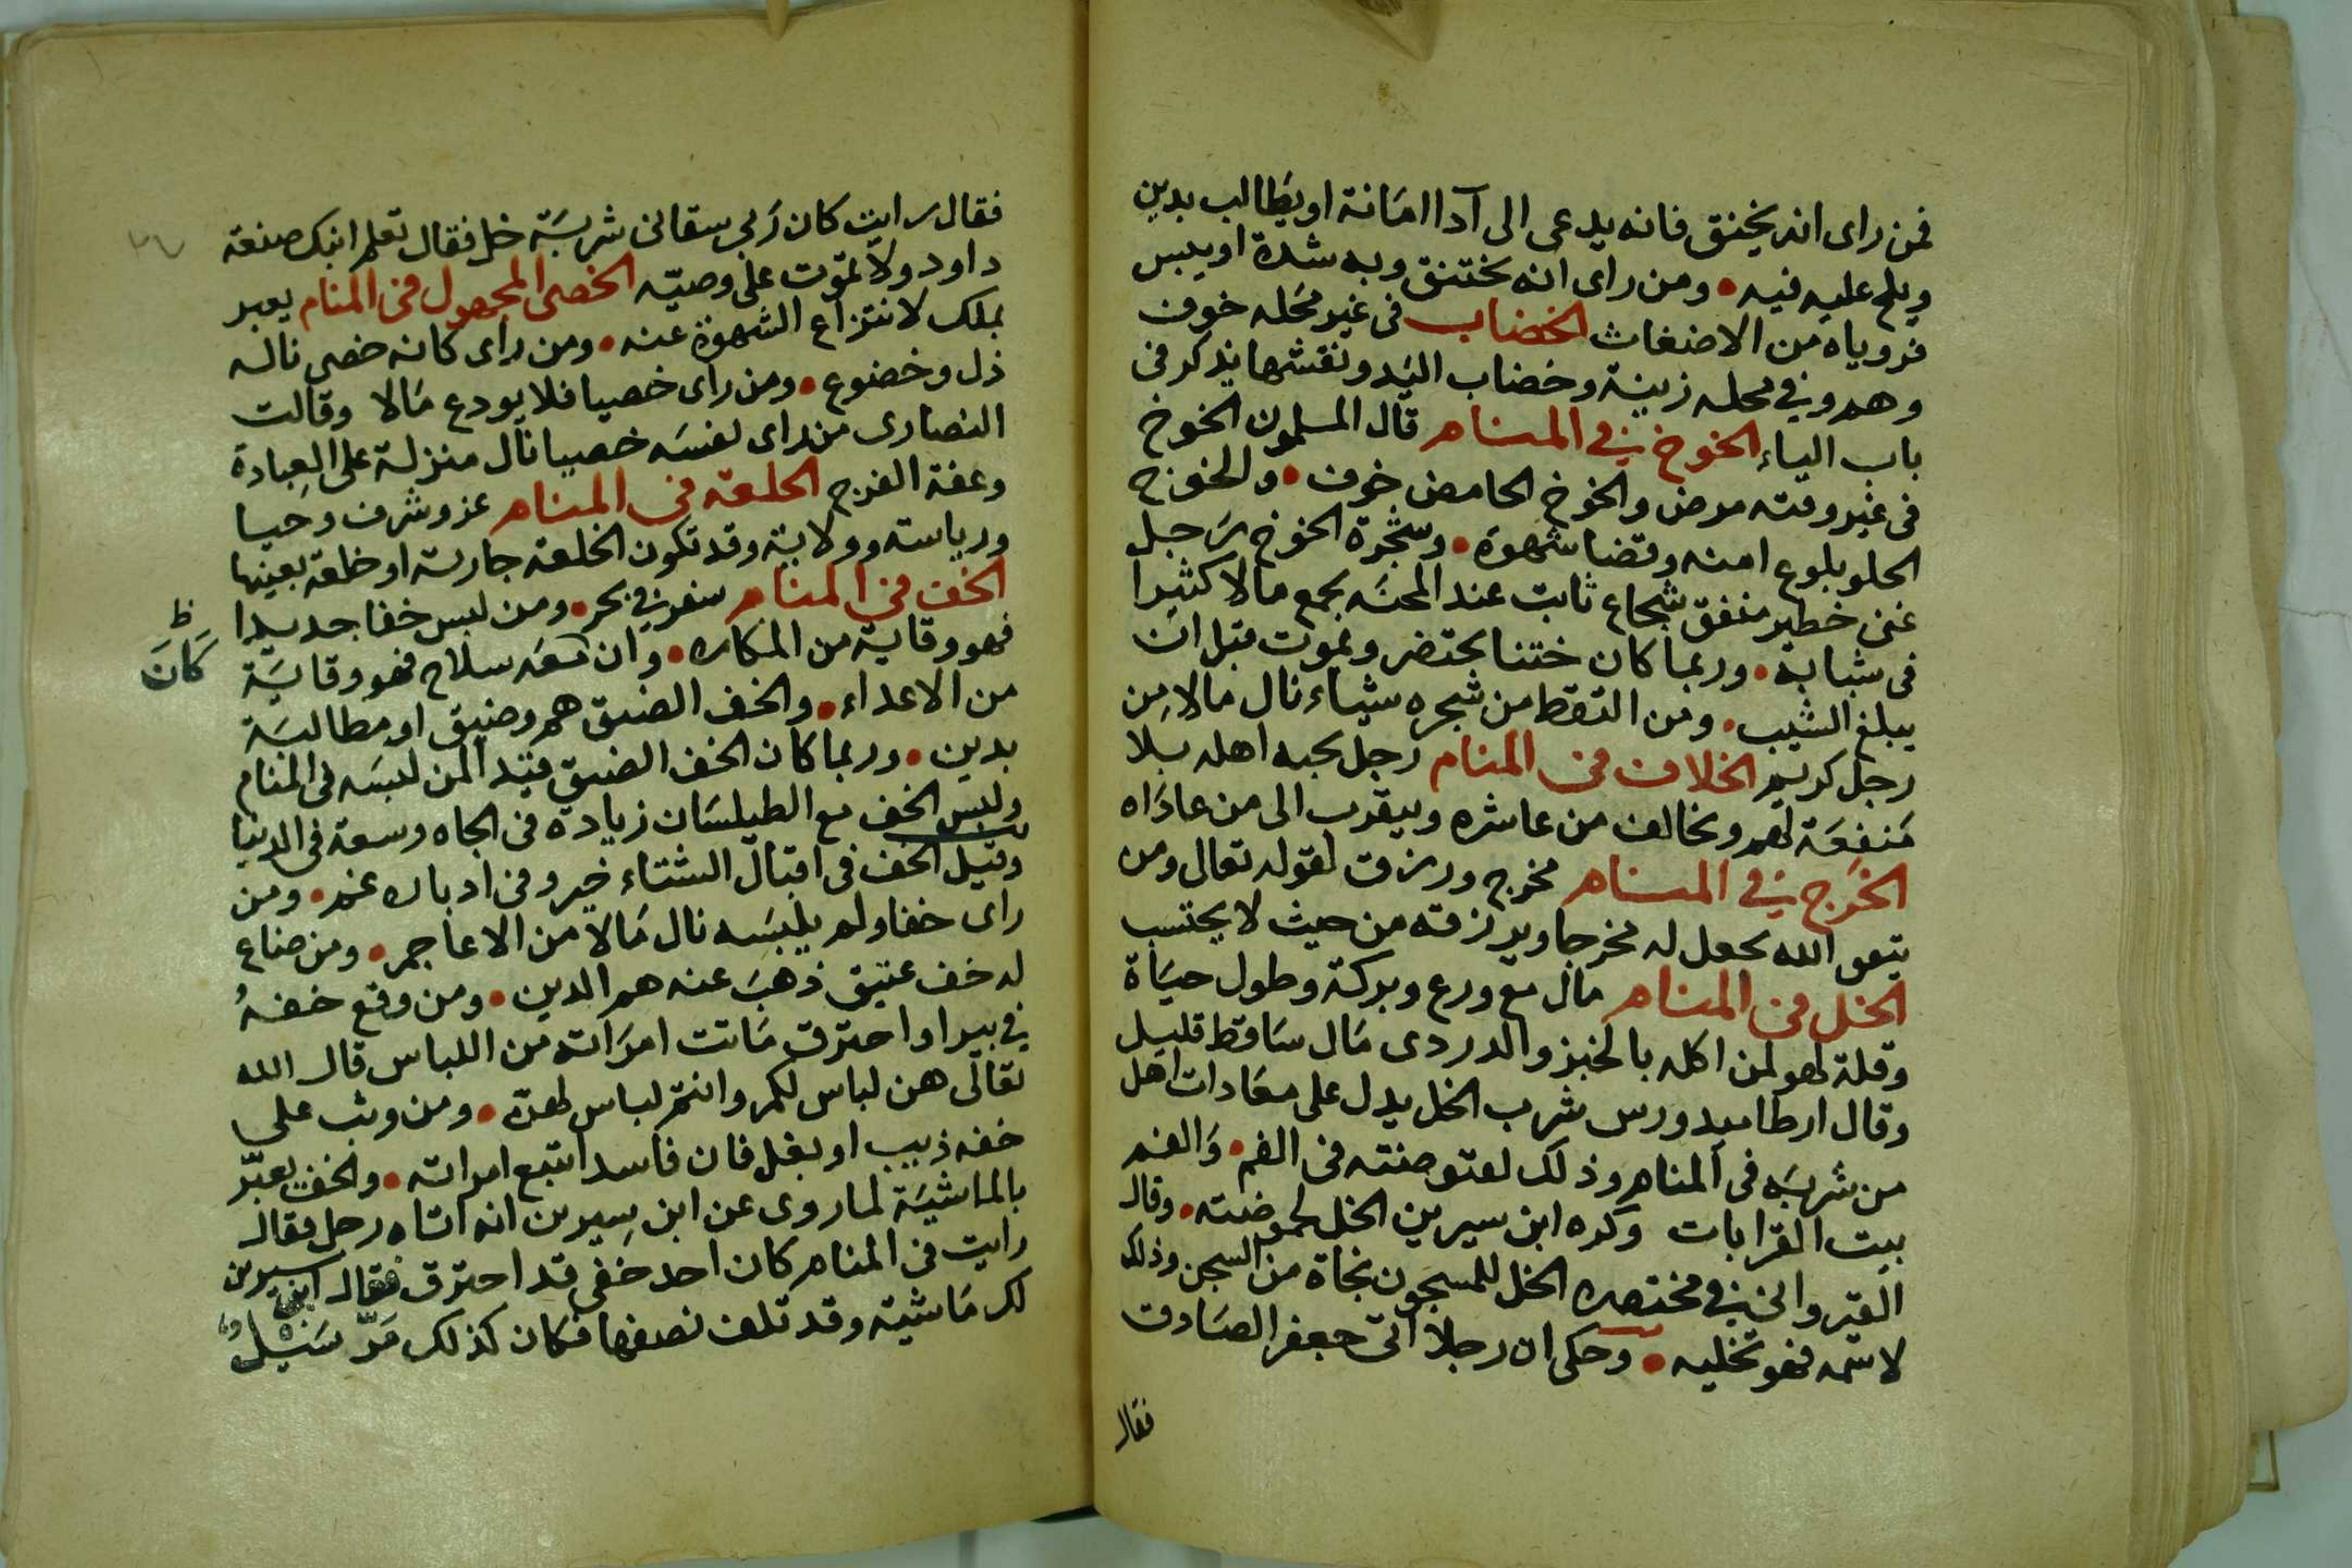 فمن راى انه يختنق فانه يدعى الى آدا امَانة او يطَالب بدين
ويلح عليه فيه • ومن راى انه مختنق وبه شدة او يبس
فروياه من الاضغاث الخضاب فى غير محَله خوف
وهم وفي محله زينة وخضاب اليَد ونقشها يذكر فى
باب الياء الخوخ في المنام قال المسلمون الخوخ
فى غير وقته مرض والخوخ الحامض خوف • والخوخ
الحلو بلوغ امنه وقضا شهوَة • وشجرة الخوخ رَجل
غنى خطير منفق شجاع ثابت عند المحنَه يجمع مالا كثيرا
فى شبابه • وربما كان ختنا يحتضر ويموت قبل ان
يبلغ الشيب • ومن التقط من شجره شيَاء نال مالا مِن
رجل كريم الخلاف فى المنام رجل يحبه اهله بلا
مَنفِعَة لهم ويخالف من عاشره ويتقرب الى من عادَاه
الخَرج في المنام مخرج ورزق لقوله تعالى ومن
يتعق الله يجعل له مخرجا ويرزقه من حيث لا يحتسب
الخل فى المنام مال مع ورع وبركة وطول حيَاة
وقلة لهو لمن اكله بالخبز والدردى مَال سَاقط قليل
وقال ارطاميدورس شرب الخل يدل على معَادات اهل
من شربَه فى المنام وذلك لعفوصنته فى الفم • وَالفم
بيت القرابات وكره ابن سيرين الخل لحموضته • وقال
القيروانى في مختصره الخل للمسجون نجاة من السجن وذلك
لاسمه فهو تخليه • وحكى ان رجلا اتى جعفر الصَادق
فقال
فقال رايت كان رَبى سقانى شربَة خل فقال تعلم ابنك صنعة
داود ولا تموت على وصيّه الخصى المجهول فى المنام يعبر
بملك لانتزاع الشهوة عنه • ومن راى كانه خصى ناله
ذل وخضوع • ومن راى خصيا فلا يودع مَالا وقالت
النصارى من راى نفسَه خصيا نال منزلة على العِبادة
وعفة الفرج الخلعة فى المنام عز وشرف وحيا
ورياسته وولاية وقد تكون الخلعة جارية او خلعة بعينها
الخف في المنام سفر في بحر • ومن لبس خفا جديدا
فهو وقاية من المكاره • وان معَه سلاح فهو وقايَة
ظ
كَانَ
من الاعداء • والخف الضيق هم وضيق او مطالبَة
بدين • وربما كان الخف الضيق قيدا لمن لبسَه فى المنام
ولبس الخف مع الطيلسَان زيادة فى الجاه وسعة فى الدنيا
وقيل الخف فى اقبال الشتاء خير وفى ادباره غم • ومن
راى خفا ولم يلبسَه نال مَالا من الاعاجم • ومن ضاع
له خف عتيق ذهبَ عنه هم الدين • ومن وقع خفهُ
في بير او احترق مَاتت امرَاته من اللباس قال الله
تعالى هن لباس لكم وانتم لباس لهن • ومن وثب على
خفه ذيب او بغل فان فاسدا تبع امراته • والخف يعبّر
بالماشيَة لما روى عن ابن سِيرين انه اتاه رجل فقال
رايت فى المنام كان احد خفى قد احترق فقال ابن سيرين
لك مَاشية وقد تلف نصفها فكان كذلك مَرّ سَبيل